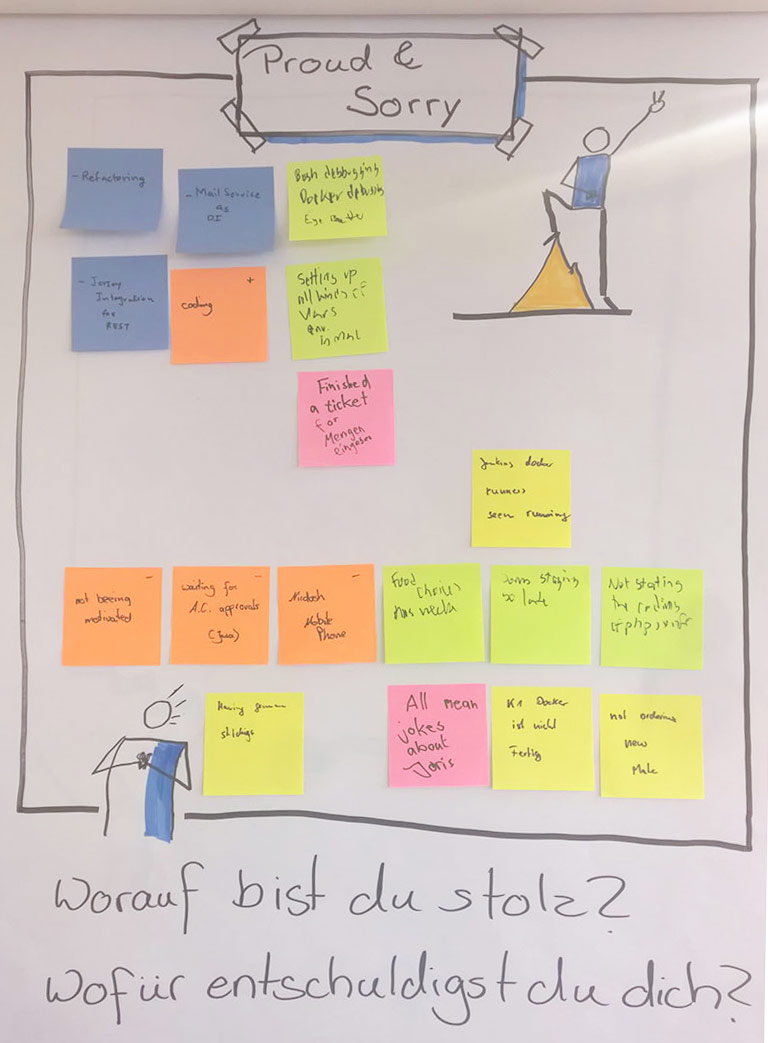 Proud &
Sorry
- Refactoring
- Mail Service
as
DI
Bash debugging
Docker debugging
- Jersey
Integration
for
REST
+
coding
Setting up
all kinds of
Vars
env.
Finished
a ticket
for
Mengen
eingaben
Jenkins docker
runners
seen running
-
not beeing
motivated
-
waiting for
A.C. approvals
-
Mobile
Phone
Food
Choices
staging
so late
Not starting
the
Having german
All mean
jokes
about
Joris
K1 Docker
ist nicht
Fertig
not ordering
new
Mate
Worauf bist du stolz?
Wofür entschuldigst du dich?